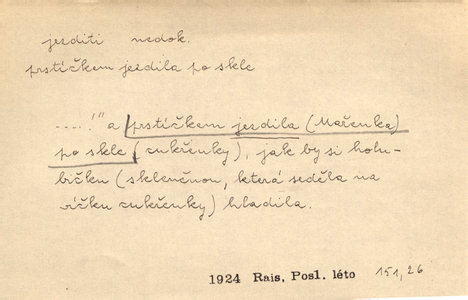 jezditi nedok.
prstíčkem jezdila po skle
....!" a prstíčkem jezdila (Mařenka)
po skle (cukřenky), jak by si holu-
bičku (skleněnou, která seděla na
víčku cukřenky) hladila.
1924 Rais, Posl. léto 151,26